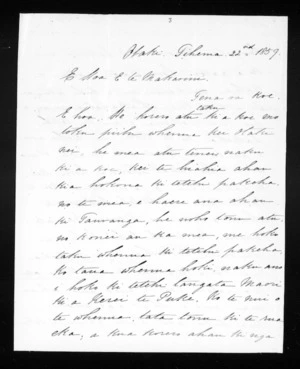 3
Otaki. Tihema. 22nd 1859.
E Hoa E te Makarini.
Tena ra koe.
E hoa. He korero atu ki a koe mo
taku
toku pihi whenua kei Otaki
nei, he mea atu tenei naku
ki a koe, kei te hiahia ahau
kia hokona ki tetehi pakeha.
no te mea, e haere ana ahau
ki Tauranga, he whakarite atu
no konei au ka mea, me hoko
taku whenua ki tetehi pakeha.
ko taua whenua hoki, naku ano
i hoko ki tetehi tangata Maori
ki a Kerei te Puke. Ko te nui o
te whenua, tata tonu ki te ma
eka, a kua korero ahau ki nga